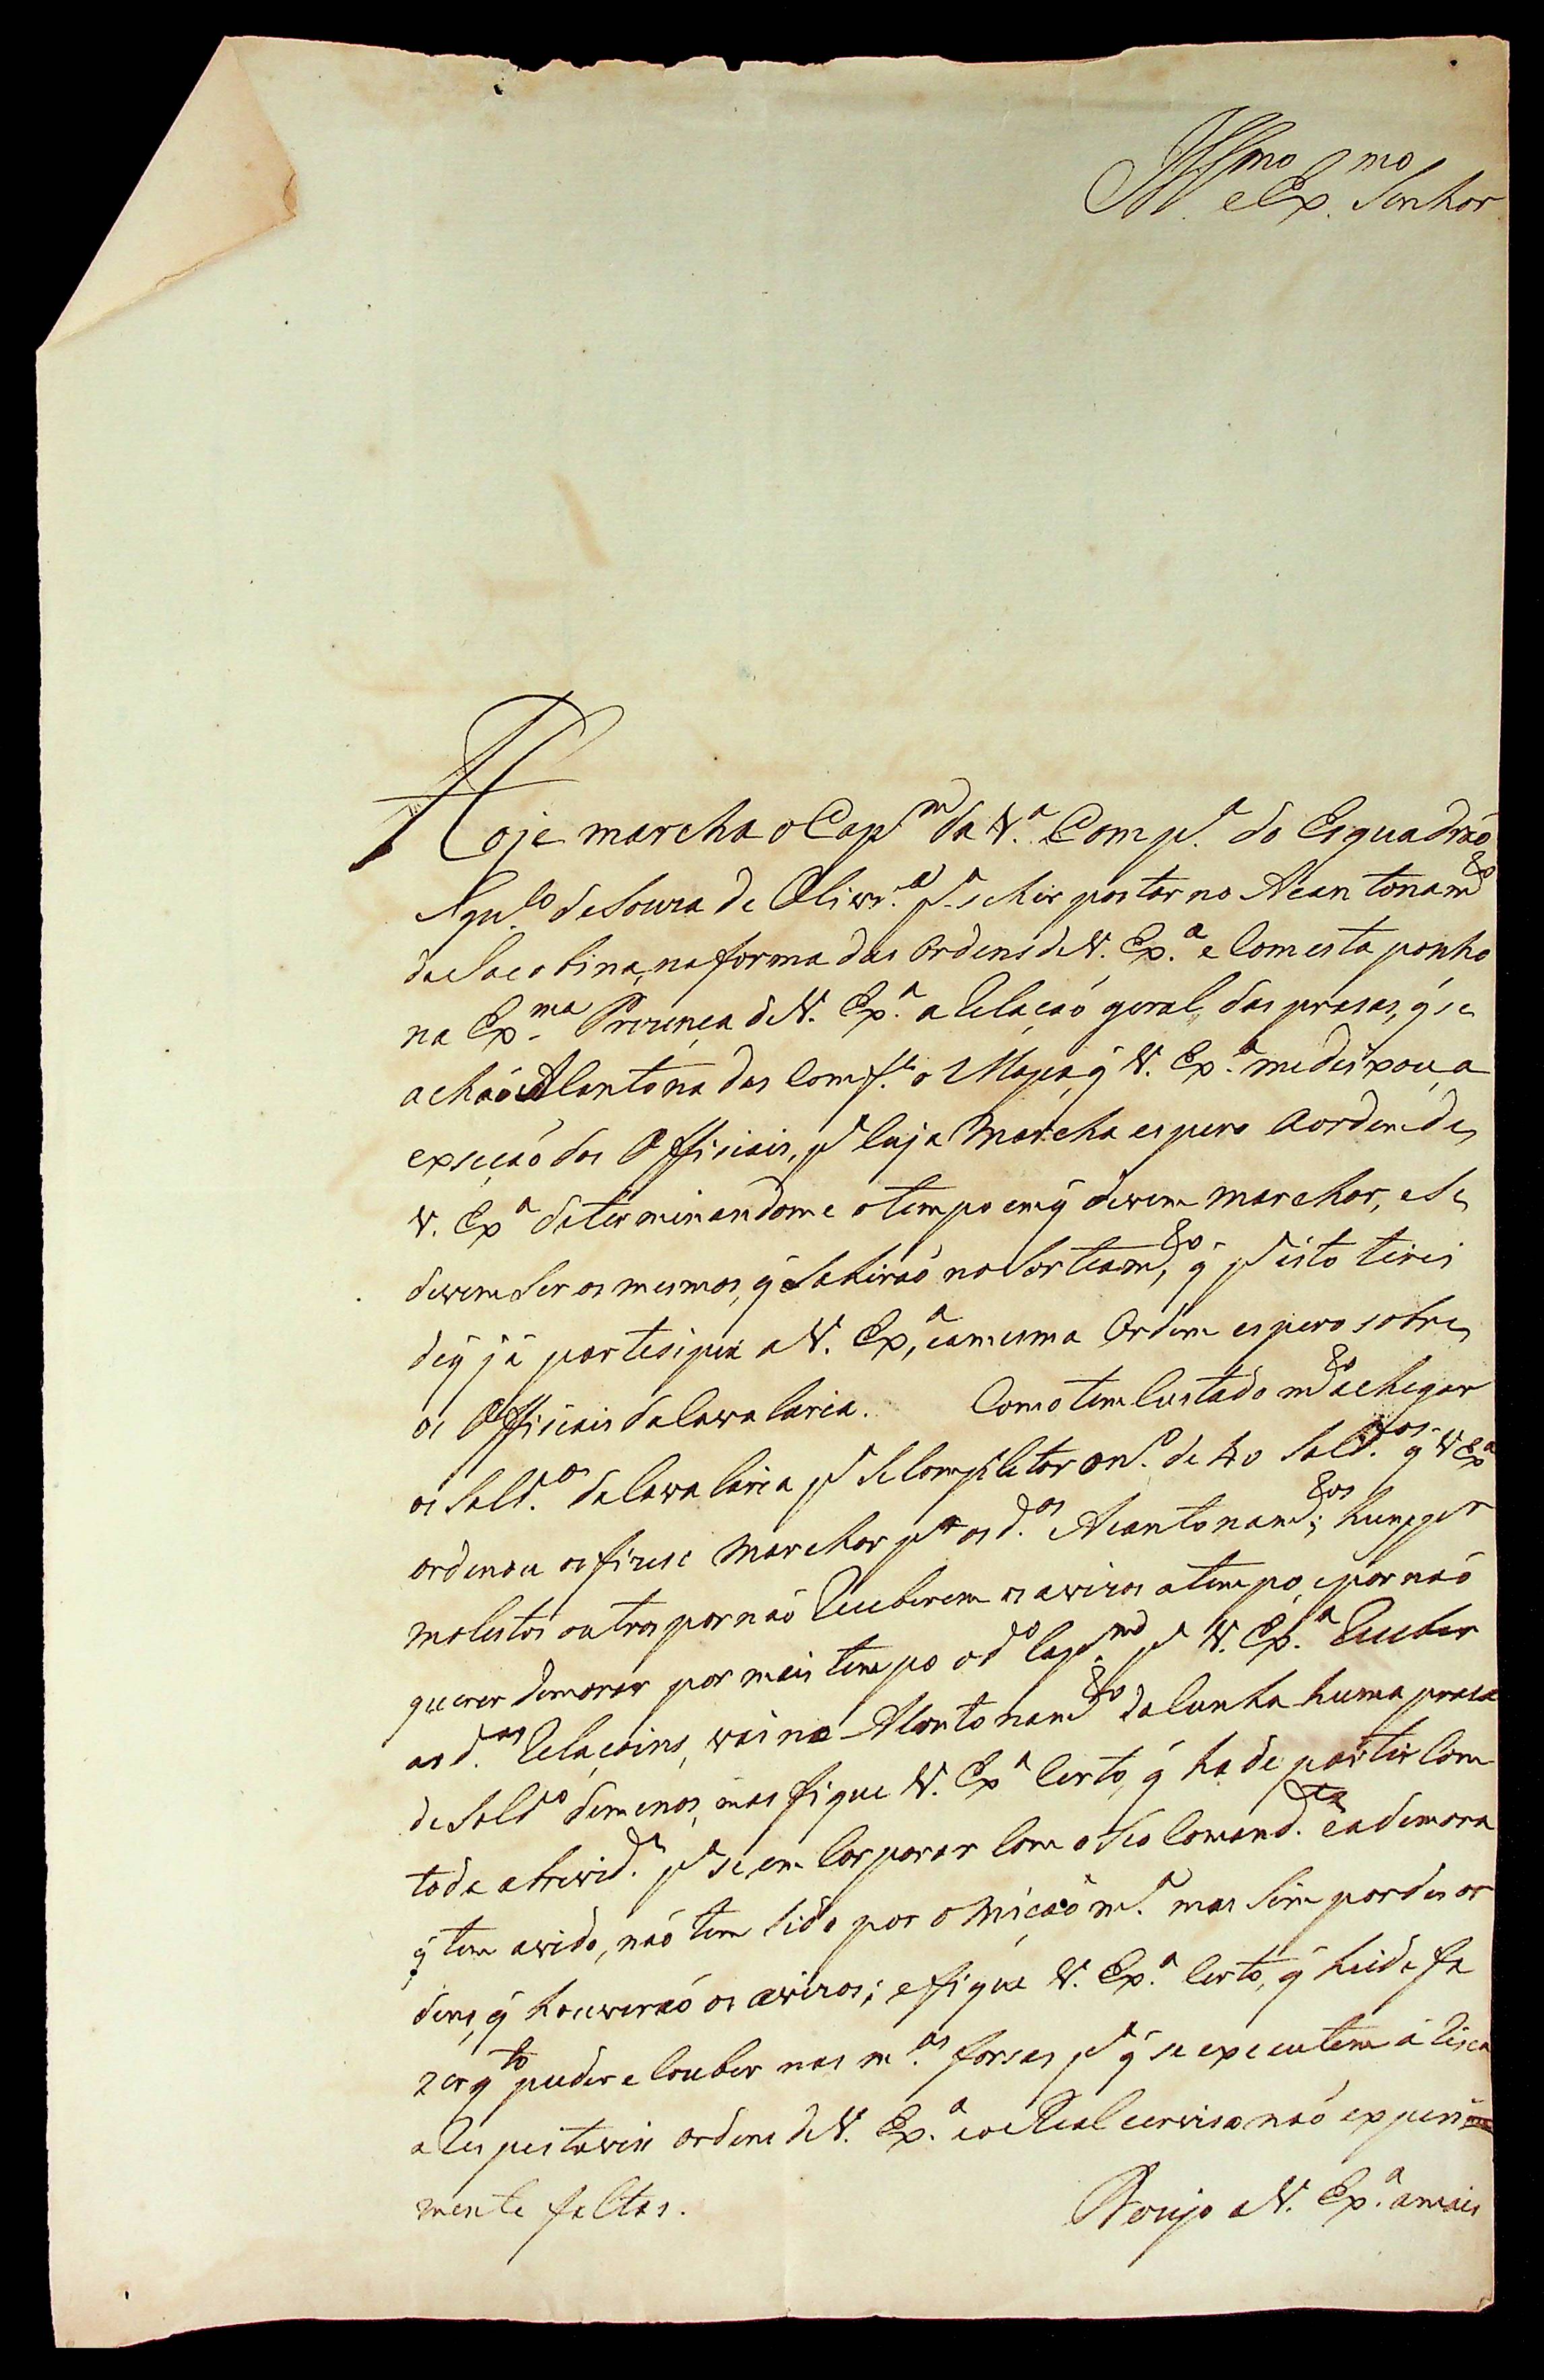 Illmo e Exmo Senhor
Hoje marcha o Cap.m da V.a Comp.a do Esquadraõ
Agu.lo de Souza de Olivr.a p.a se hir postar no Acantonam.to
de Jacobina, na forma das Ordens de V. Ex.a e Com esta ponho
na Ex.ma Prezença de V. Ex.a a Relaçaõ geral das prasas, q̃ se
achaõ Acantonadas Comf.e o Mapa, q̃ V. Ex.a me deixou, a
exseçaõ dos Officiais, p.a Cuja Marcha espero a ordem de
V. Ex.a determinandome o tempo em q̃ devem marchar, e Se
devem Ser os mesmos, q̃ Sahiraõ no Sorteam.to, q̃ p.a isto tirei
de q̃ já partisipei a V. Ex.a, e a mesma Ordem espero sobre
os Officiais da Cavalaria. Como tem Custado m.to a chegar
os Sold.os da Cavalaria p.a Se Completar o n.o de 40 Sold.os q̃ V Ex.a
ordenou os fizese Marchar p.a os d.os Acantonam.tos; huns por
molestos outros por naõ Receberem os avizos a tempo, e por naõ
querer demorar por mais tempo o d.o Cap.m p.a V. Ex.a Receber
as d.as Relaçoins, vai no Acontonam.to da Cunha huma prasa
de Sold.o de menos, mas fique V. Ex.a Certo, q̃ ha de partir Com
toda a brevid.e p.a se em Corporar Com o Seo Comand.te e a demora
q̃ tem avido, naõ tem Sido por omiçaõ m.a mas Sim por desor
dens, q̃ houveraõ os avizos; e fique V. Ex.a Certo, q̃ heide fa
zer q.to puder e Couber nas m.as forsas p.a q̃ se executem a Risca
as Respestaveis ordens de V. Ex.a e o Real Cerviso naõ experi
mente faltas. Dezejo a V. Ex.a a mais